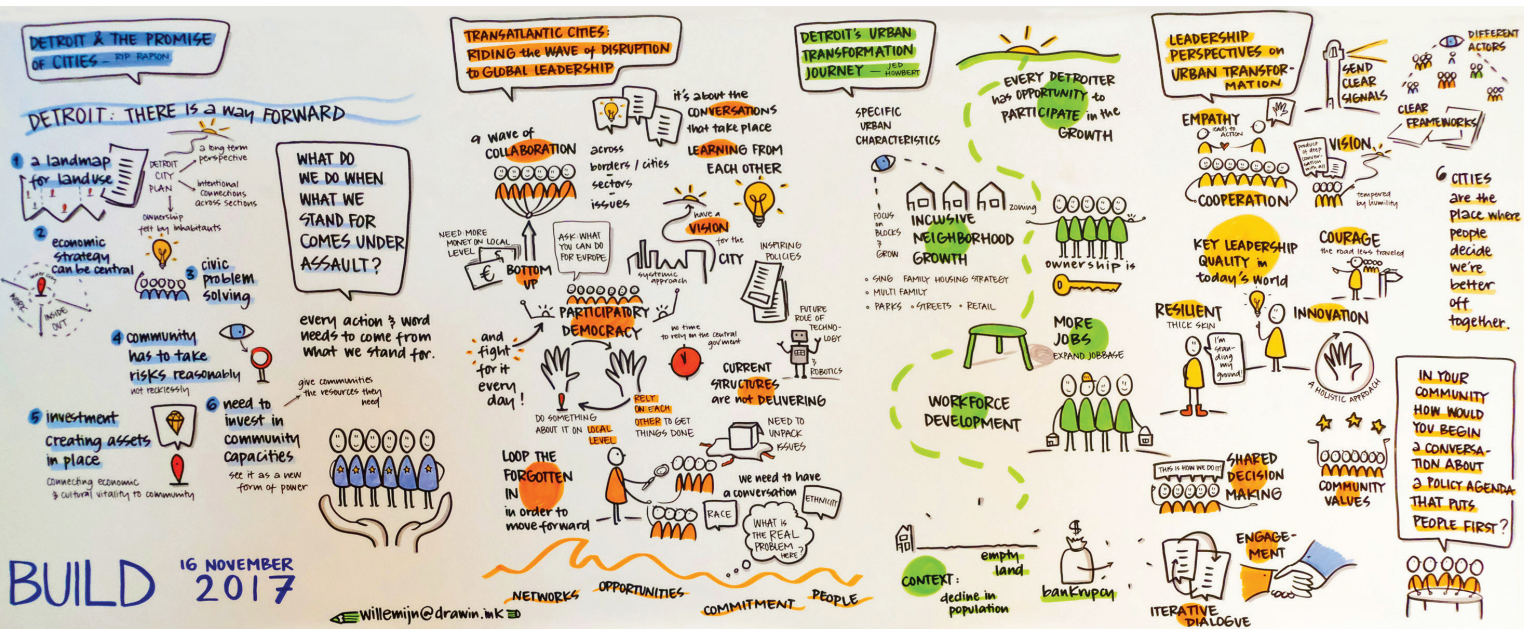 DETROIT & THE PROMISE
OF CITIES – RIP RAPSON
DETROIT: THERE IS a way FORWARD
1 a landmap
for landuse
DETROIT
CITY
PLAN
a long term
perspective
intentional
connections
across sections
ownership
felt by inhabitants
2 economic
strategy
can be central
INSIDE
OUT
3 civic
problem
solving
4 community
has to take
risks reasonably
not recklessly
5 investment
creating assets
in place
connecting economic
& cultural vitality to community
6 need to
invest in
community
capacities
see it as a new
form of power
give communities
the resources they
need
WHAT DO
WE DO WHEN
WHAT WE
STAND FOR
COMES UNDER
ASSAULT?
every action & word
needs to come from
what we stand for.
BUILD
16 NOVEMBER
2017
willemijn@drawin.ink
TRANSATLANTIC CITIES:
RIDING the WAVE of DISRUPTION
to GLOBAL LEADERSHIP
a wave of
COLLABORATION
across
borders / cities
sectors
issues
it's about the
CONVERSATIONS
that take place
LEARNING FROM
EACH OTHER
NEED MORE
MONEY ON LOCAL
LEVEL
€
BOTTOM
UP
ASK WHAT
YOU CAN DO
FOR EUROPE
have a
VISION
for the
CITY
systemic
approach
INSPIRING
POLICIES
PARTICIPATORY
DEMOCRACY
and
fight
for it
every
day!
no time
to rely on the central
gov'ment
FUTURE
ROLE OF
TECHNO-
LOGY
& ROBOTICS
CURRENT
STRUCTURES
are not DELIVERING
DO SOMETHING
ABOUT IT ON LOCAL
LEVEL
RELY
ON EACH
OTHER TO GET
THINGS DONE
NEED TO
UNPACK
ISSUES
LOOP THE
FORGOTTEN
IN
in order to
move forward
we need to have
a conversation
RACE
ETHNICITY
WHAT IS
THE REAL
PROBLEM
HERE?
NETWORKS
OPPORTUNITIES
COMMITMENT
PEOPLE
DETROIT'S URBAN
TRANSFORMATION
JOURNEY – JED
HOWBERT
SPECIFIC
URBAN
CHARACTERISTICS
FOCUS
on
BLOCKS
&
GROW
EVERY DETROITER
has OPPORTUNITY to
PARTICIPATE in the
GROWTH
zoning
INCLUSIVE
NEIGHBORHOOD
GROWTH
SING FAMILY HOUSING STRATEGY
MULTI FAMILY
PARKS • STREETS • RETAIL
ownership is
MORE
JOBS
EXPAND JOBBASE
WORKFORCE
DEVELOPMENT
CONTEXT:
decline in
population
empty
land
$
bankrupcy
LEADERSHIP
PERSPECTIVES on
URBAN TRANSFOR-
MATION
SEND
CLEAR
SIGNALS
DIFFERENT
ACTORS
CLEAR
FRAMEWORKS
EMPATHY
leads to
ACTION
COOPERATION
product of deep
conver-
sation
VISION
tempered
by humility
KEY LEADERSHIP
QUALITY in
today's world
COURAGE
the road less traveled
RESILIENT
THICK SKIN
I'm
stan-
ding
my
ground!
INNOVATION
A HOLISTIC APPROACH
THIS IS HOW WE DO IT!
SHARED
DECISION
MAKING
COMMUNITY
VALUES
ITERATIVE
DIALOGUE
ENGAGE-
MENT
6 CITIES
are the
place where
people
decide
we're
better
off
together.
IN YOUR
COMMUNITY
HOW WOULD
YOU BEGIN
a CONVERSA-
TION ABOUT
a POLICY AGENDA
THAT PUTS
PEOPLE FIRST?